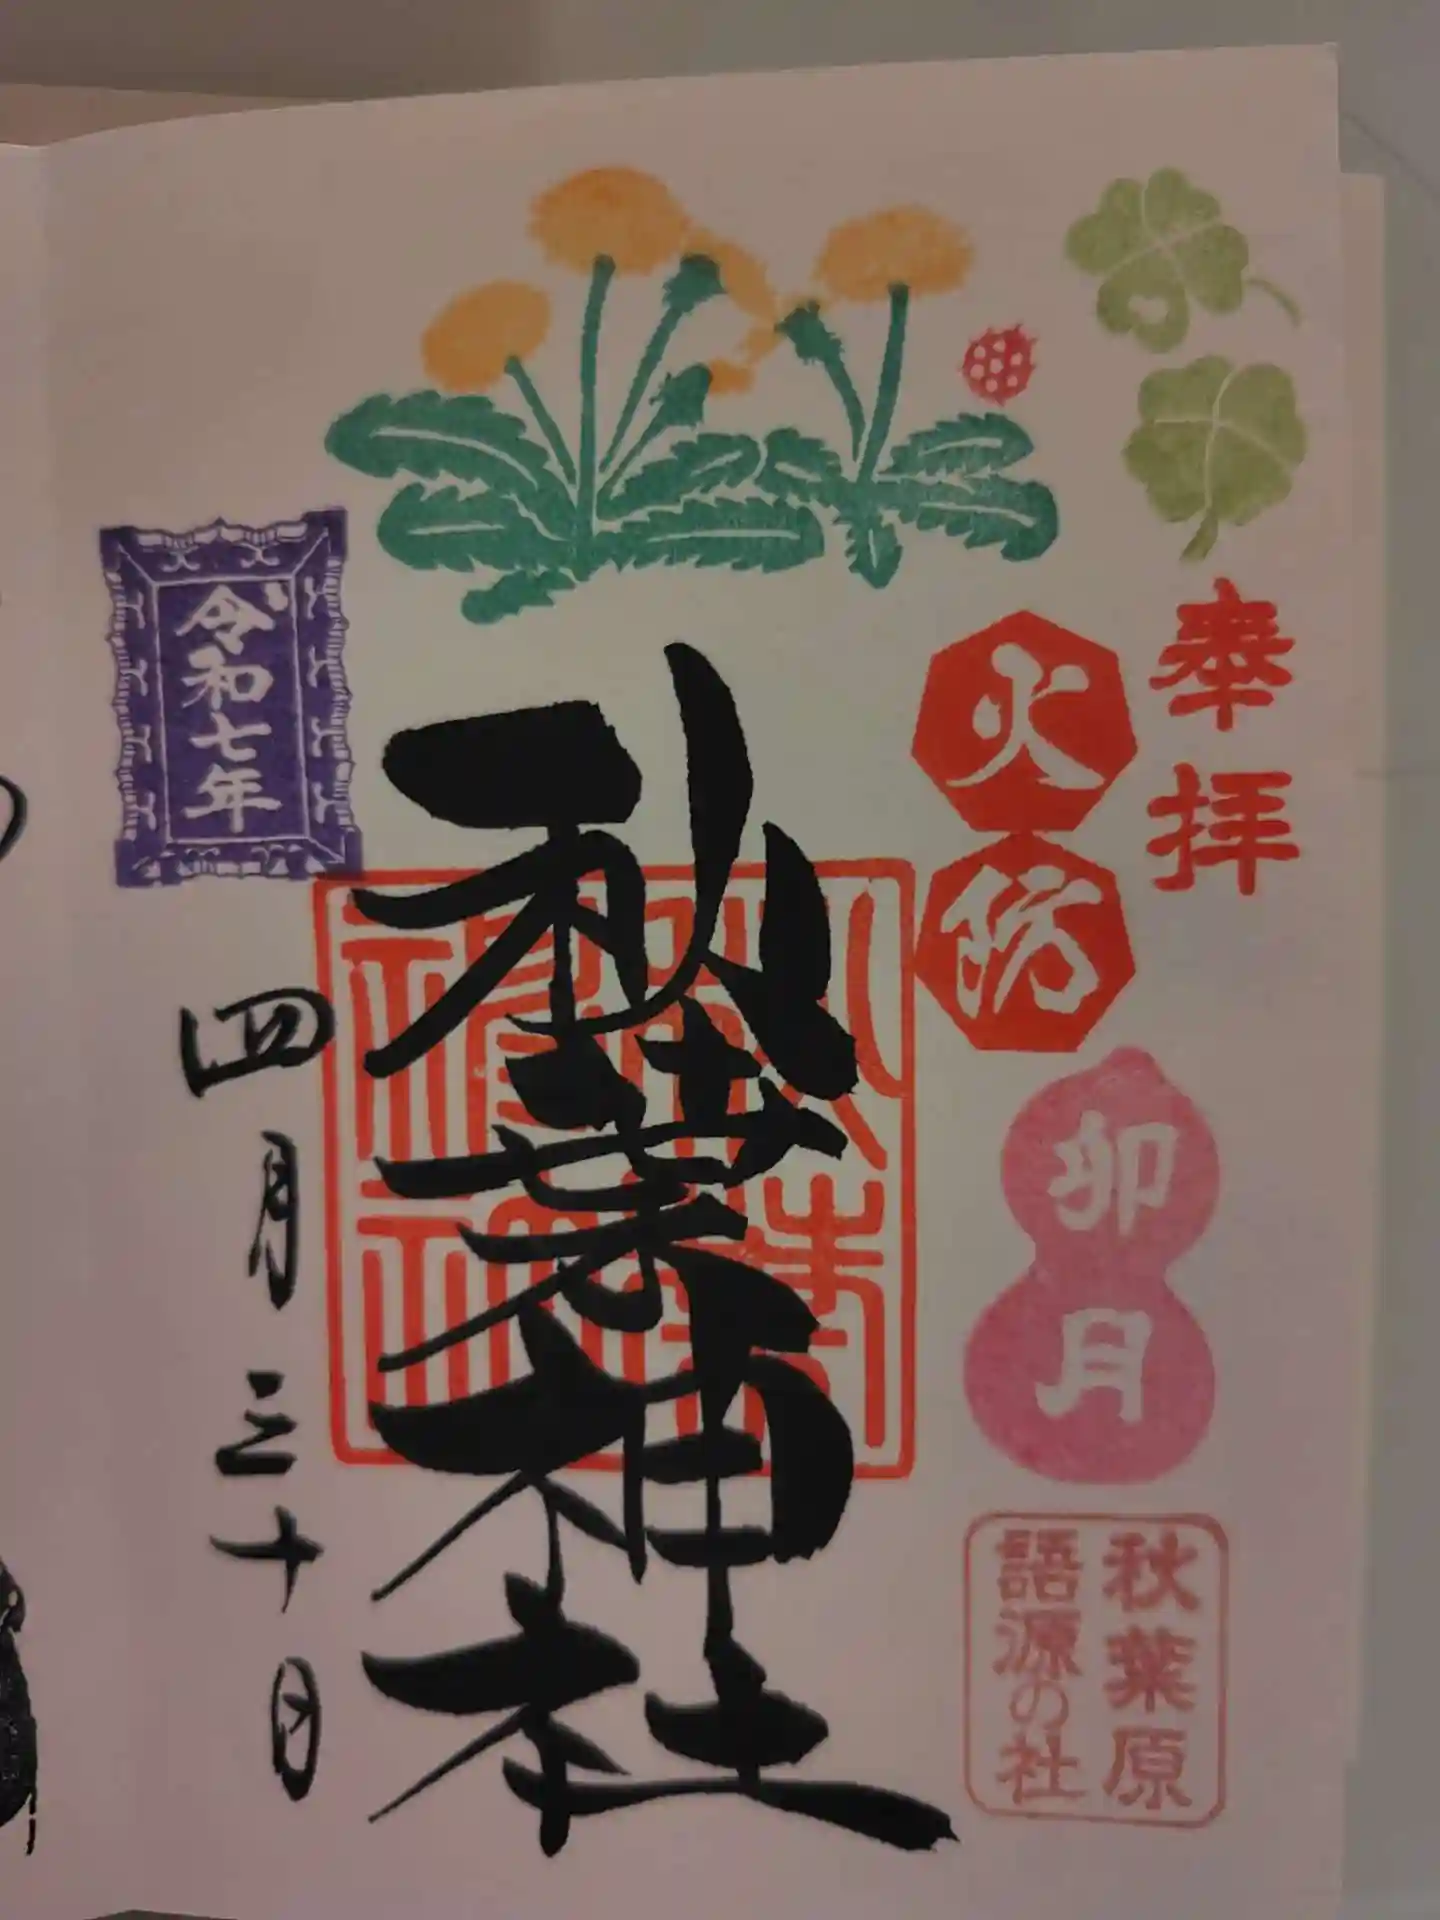 奉拝
火防
卯月
秋葉原
語源の社
秋葉神社
令和七年
四月三十日